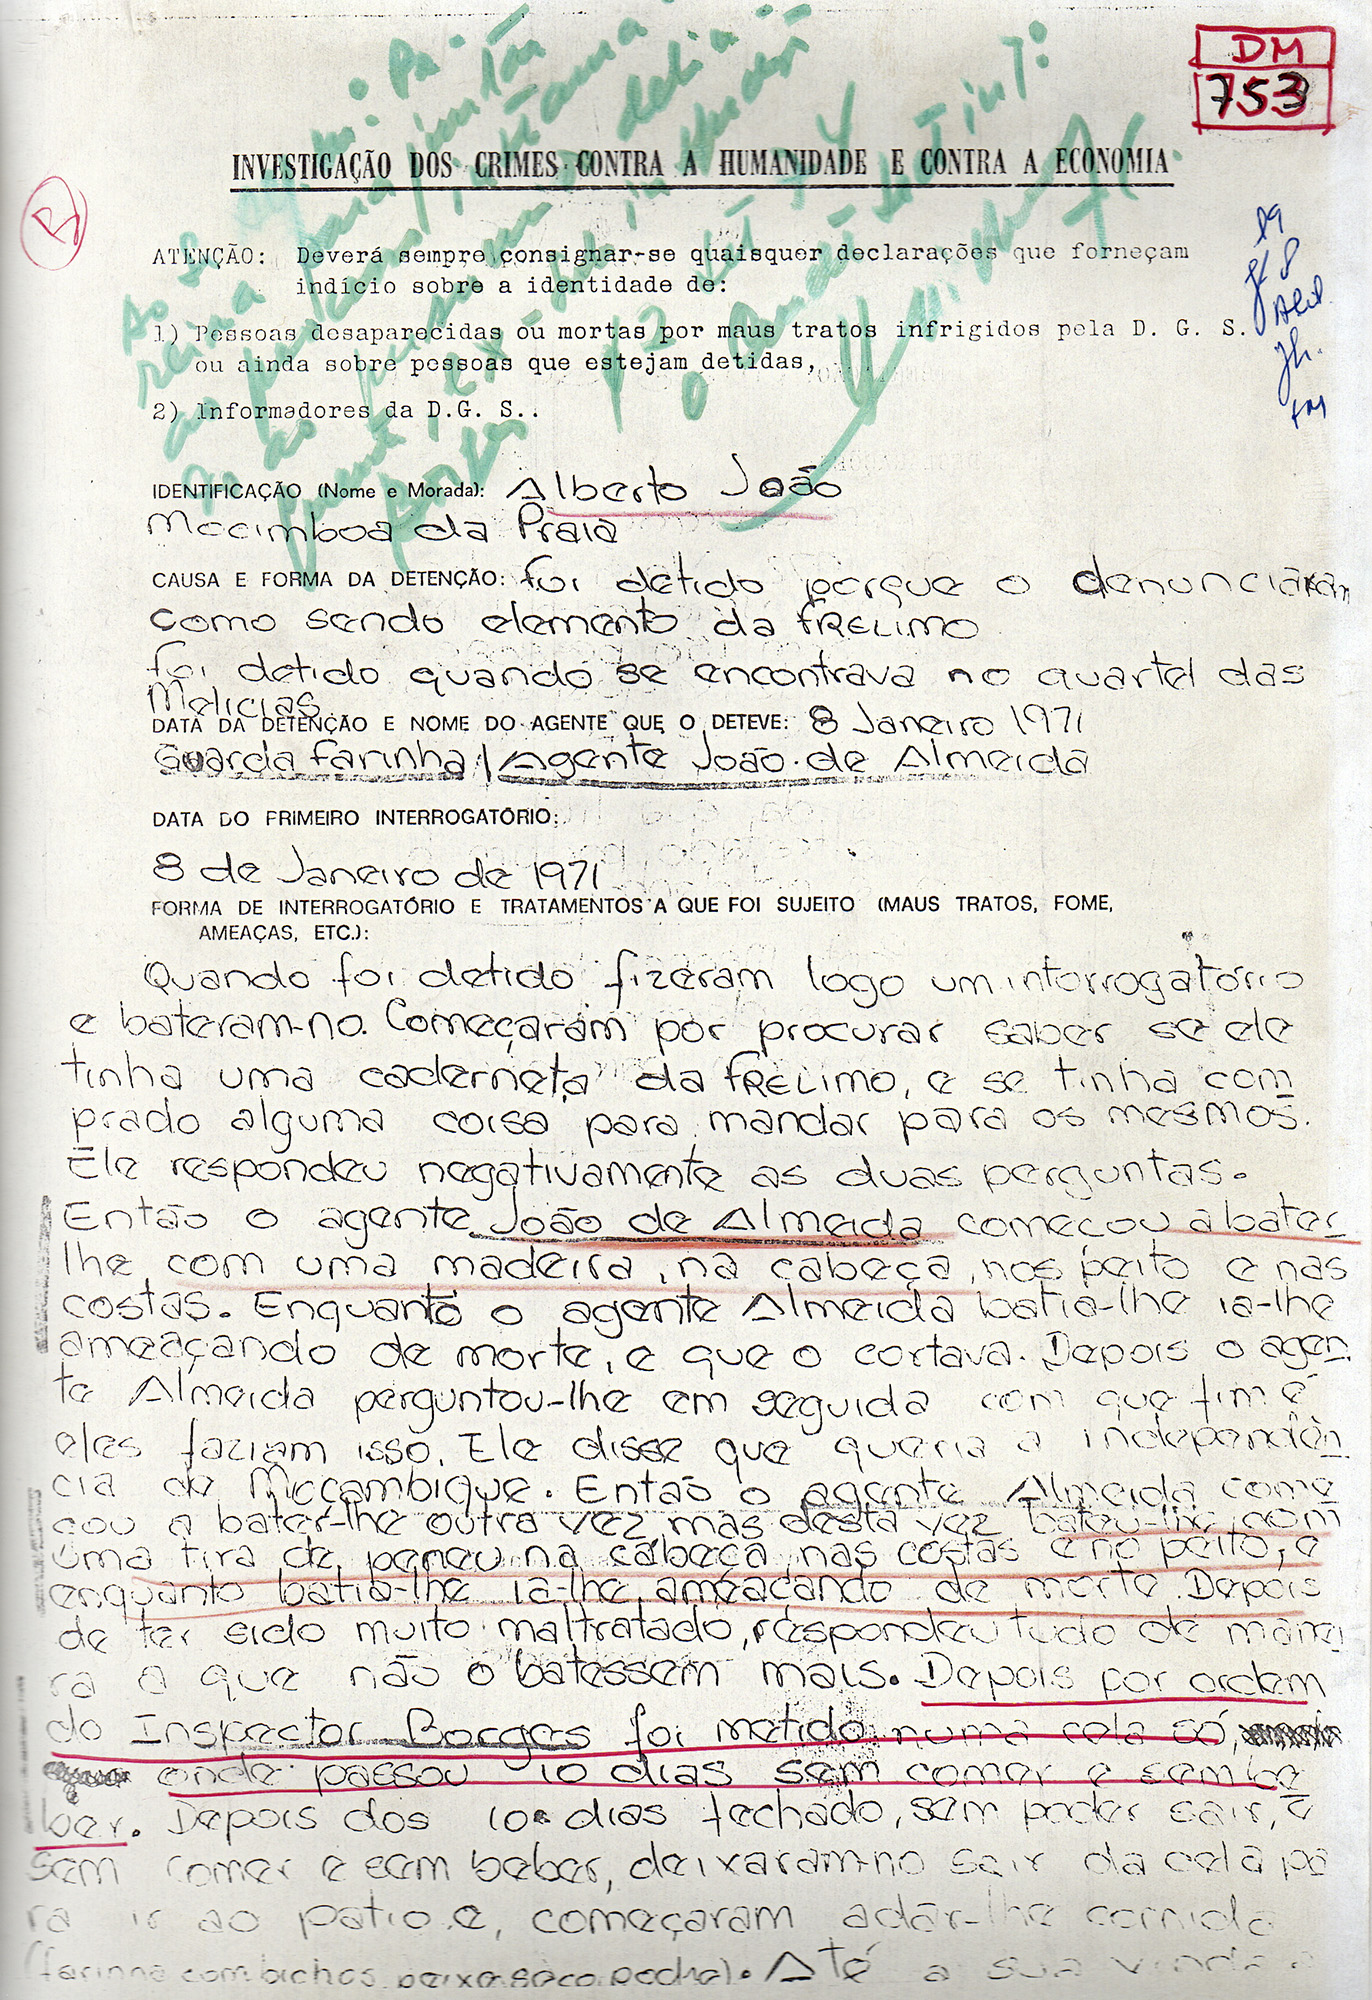 DM
753
INVESTIGAÇÃO DOS CRIMES CONTRA A HUMANIDADE E CONTRA A ECONOMIA
ATENÇÃO: Deverá sempre consignar-se quaisquer declarações que forneçam
indício sobre a identidade de:
1) Pessoas desaparecidas ou mortas por maus tratos infrigidos pela D. G. S.
ou ainda sobre pessoas que estejam detidas,
2) Informadores da D.G. S..
IDENTIFICAÇÃO (Nome e Morada): Alberto João
Mocimboa da Praia
CAUSA E FORMA DA DETENÇÃO: foi detido porque o denunciaram
como sendo elemento da FRELIMO
foi detido quando se encontrava no quartel das
Melicias
DATA DA DETENÇÃO E NOME DO AGENTE QUE O DETEVE: 8 Janeiro 1971
Guarda Farinha / Agente João de Almeida
DATA DO PRIMEIRO INTERROGATÓRIO:
8 de Janeiro de 1971
FORMA DE INTERROGATÓRIO E TRATAMENTOS A QUE FOI SUJEITO (MAUS TRATOS, FOME,
AMEAÇAS, ETC.):
Quando foi detido fizeram logo um interrogatório
e bateram-no. Começaram por procurar saber se ele
tinha uma caderneta da FRELIMO, e se tinha com
prado alguma coisa para mandar para os mesmos.
Ele respondeu negativamente as duas perguntas.
Então o agente João de Almeida começou a bater
lhe com uma madeira, na cabeça, nos peito e nas
costas. Enquanto o agente Almeida batia-lhe ia-lhe
ameaçando de morte, e que o cortava. Depois o agen
te Almeida perguntou-lhe em seguida com que fim é
eles faziam isso. Ele disse que queria a independên
cia de Moçambique. Então o agente Almeida come
çou a bater-lhe outra vez, mas desta vez bateu-lhe com
uma tira de peneu na cabeça, nas costas e no peito, e
enquanto batia-lhe ia-lhe ameaçando de morte. Depois
de ter sido muito maltratado, respondeu tudo de manei
ra a que não o batessem mais. Depois por ordem
do Inspector Borges foi metido numa cela só,
onde passou 10 dias sem comer e sem be
ber. Depois dos 10 dias fechado, sem poder sair, e
sem comer e sem beber, deixaram-no sair da cela pa
ra ir ao patio e, começaram a dar-lhe comida
(farinha com bichos, peixe seco podre). Até a sua vinda